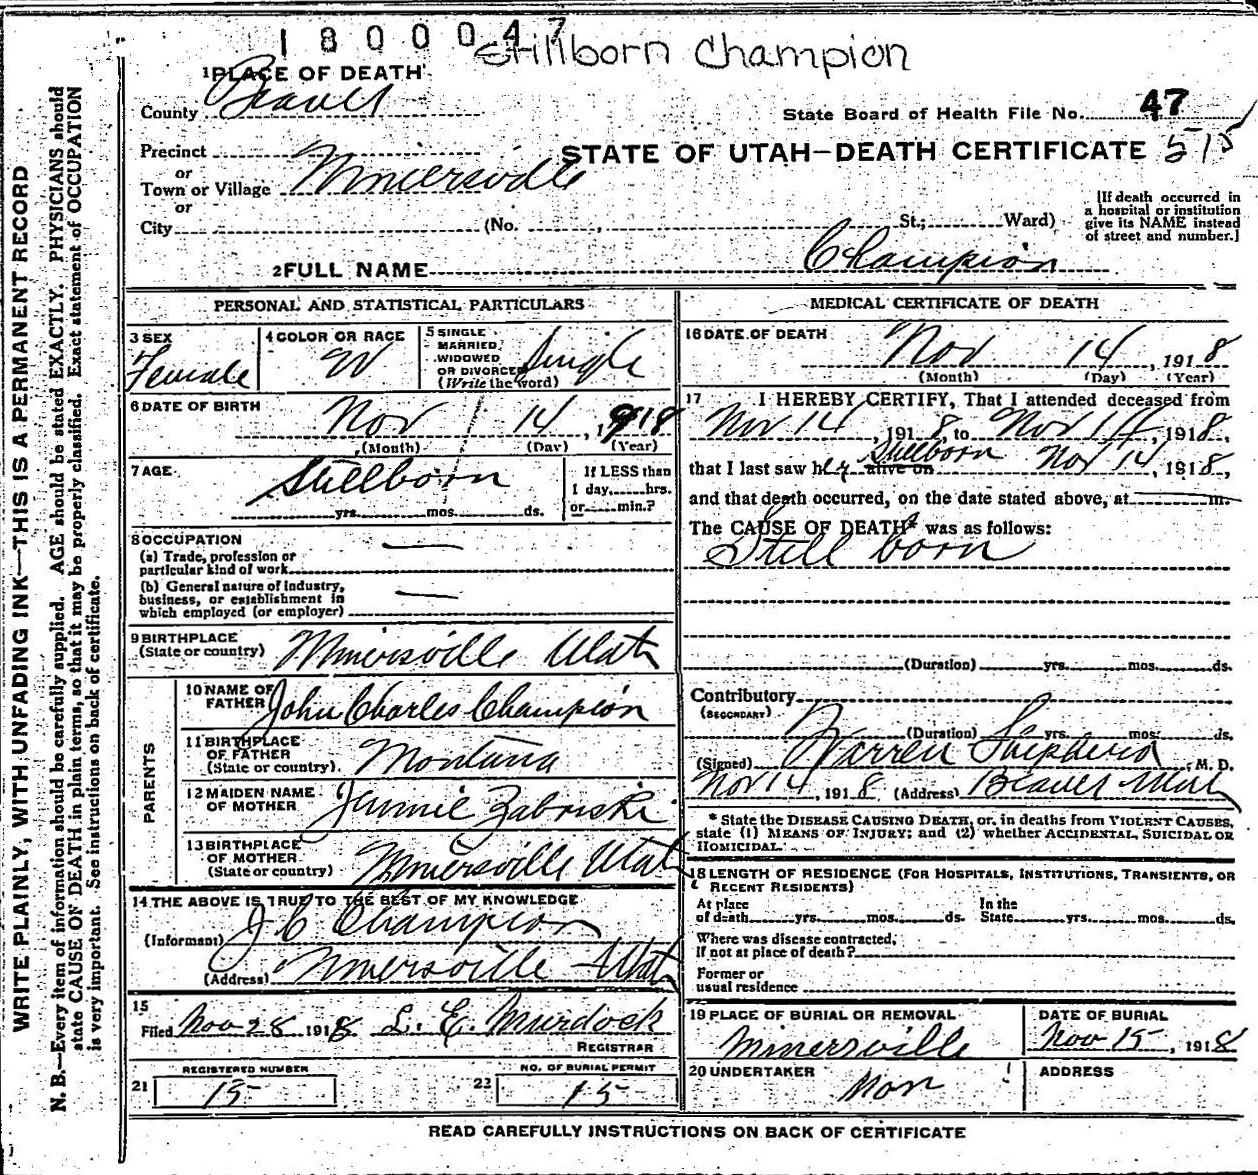 1800047
Stillborn Champion
1 PLACE OF DEATH
County Beaver
State Board of Health File No. 47
Precinct
STATE OF UTAH—DEATH CERTIFICATE 575
or
Town or Village Minersville
or
City (No. , St.; Ward)
[If death occurred in
a hospital or institution
give its NAME instead
of street and number.]
2 FULL NAME Champion
PERSONAL AND STATISTICAL PARTICULARS
3 SEX
Female
4 COLOR OR RACE
W
5 SINGLE
MARRIED,
WIDOWED
OR DIVORCED
(Write the word)
Single
6 DATE OF BIRTH
Nov 14, 1918
(Month) (Day) (Year)
7 AGE
Stillborn
yrs. mos. ds.
If LESS than
1 day, hrs.
or min.?
8 OCCUPATION
(a) Trade, profession or
particular kind of work —
(b) General nature of industry,
business, or establishment in
which employed (or employer) —
9 BIRTHPLACE
(State or country) Minersville Utah
PARENTS
10 NAME OF
FATHER John Charles Champion
11 BIRTHPLACE
OF FATHER
(State or country) Montana
12 MAIDEN NAME
OF MOTHER Jennie Zabriski
13 BIRTHPLACE
OF MOTHER
(State or country) Minersville Utah
14 THE ABOVE IS TRUE TO THE BEST OF MY KNOWLEDGE
(Informant) J C Champion
(Address) Minersville Utah
15
Filed Nov 28 1918 L. E. Murdock
REGISTRAR
REGISTERED NUMBER
21 15
NO. OF BURIAL PERMIT
22 15
MEDICAL CERTIFICATE OF DEATH
16 DATE OF DEATH
Nov 14, 1918
(Month) (Day) (Year)
17 I HEREBY CERTIFY, That I attended deceased from
Nov 14, 1918, to Nov 14, 1918,
that I last saw her alive on Stillborn Nov 14, 1918,
and that death occurred, on the date stated above, at m.
The CAUSE OF DEATH* was as follows:
Still born
(Duration) yrs. mos. ds.
Contributory
(SECONDARY)
(Duration) yrs. mos. ds.
(Signed) Warren Shepherd, M. D.
Nov 14, 1918 (Address) Beaver
* State the DISEASE CAUSING DEATH, or, in deaths from VIOLENT CAUSES,
state (1) MEANS OF INJURY; and (2) whether ACCIDENTAL, SUICIDAL OR
HOMICIDAL.
18 LENGTH OF RESIDENCE (FOR HOSPITALS, INSTITUTIONS, TRANSIENTS, OR
RECENT RESIDENTS)
At place
of death yrs. mos. ds.
In the
State yrs. mos. ds.
Where was disease contracted,
If not at place of death?
Former or
usual residence
19 PLACE OF BURIAL OR REMOVAL
Minersville
DATE OF BURIAL
Nov 15, 1918
20 UNDERTAKER
Non
ADDRESS
READ CAREFULLY INSTRUCTIONS ON BACK OF CERTIFICATE
WRITE PLAINLY, WITH UNFADING INK—THIS IS A PERMANENT RECORD
N. B.—Every item of information should be carefully supplied. AGE should be stated EXACTLY. PHYSICIANS should
state CAUSE OF DEATH in plain terms, so that it may be properly classified. Exact statement of OCCUPATION
is very important. See instructions on back of certificate.